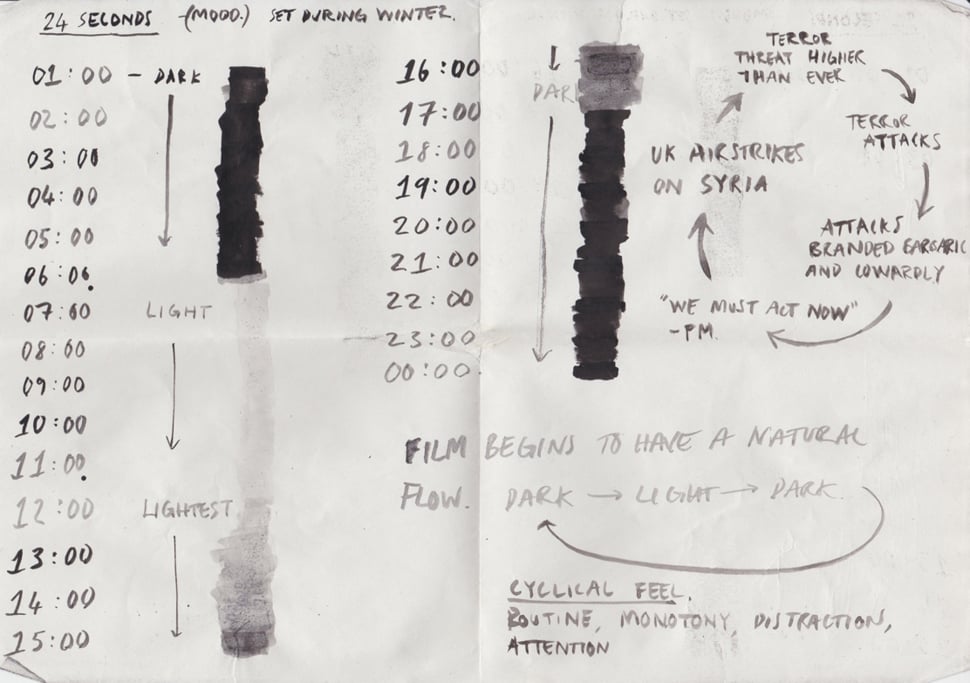 24 SECONDS (MOOD.) SET DURING WINTER.
01:00 – DARK
02:00
03:00
04:00
05:00
06:00.
07:00
LIGHT
08:00
09:00
10:00
11:00.
12:00
LIGHTEST
13:00
14:00
15:00
16:00
DARK
17:00
18:00
19:00
20:00
21:00
22:00
23:00
00:00.
TERROR
THREAT HIGHER
THAN EVER
TERROR
ATTACKS
ATTACKS
BRANDED BARBARIC
AND COWARDLY
"WE MUST ACT NOW"
- PM.
UK AIRSTRIKES
ON SYRIA
FILM BEGINS TO HAVE A NATURAL
FLOW. DARK → LIGHT → DARK.
CYCLICAL FEEL.
ROUTINE, MONOTONY, DISTRACTION,
ATTENTION